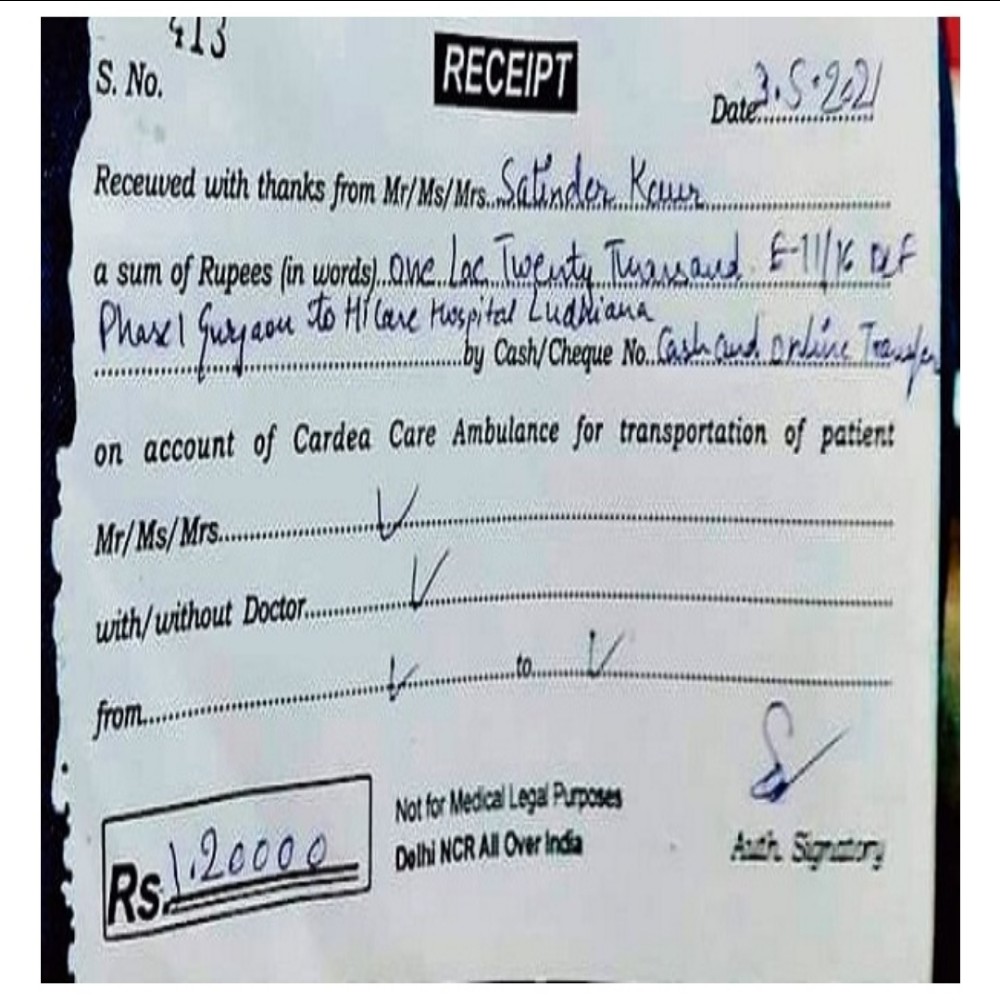 413
S. No.
RECEIPT
Date 3.5.2021
Receuved with thanks from Mr/Ms/Mrs. Satinder Kaur
a sum of Rupees (in words) one Lac Twenty Thousand E-11/16 DLF
Phase 1 Gurgaon To HiCare Hospital Ludhiana
by Cash/Cheque No. Cash and online Transfer
on account of Cardea Care Ambulance for transportation of patient
Mr/Ms/Mrs.
with/without Doctor
from to
Not for Medical Legal Purposes
Delhi NCR All Over India
Auth. Signatory
Rs. 1.20000